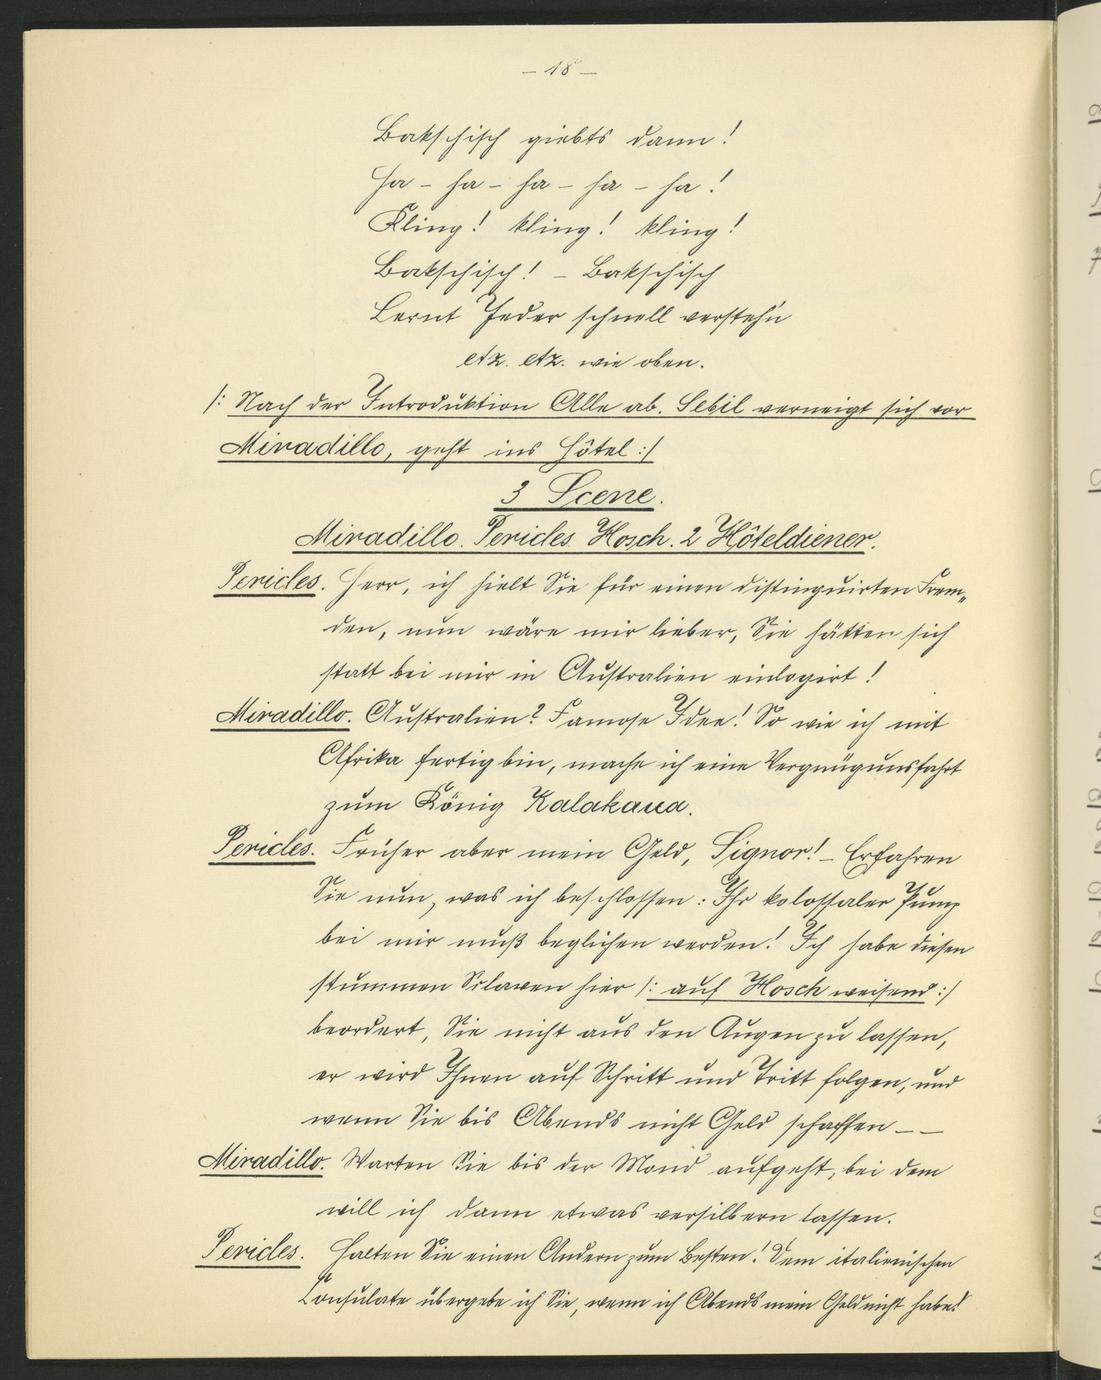 – 18 –
Bakschisch giebts dann!
Ha – ha – ha – ha – ha!
Kling! kling! kling!
Bakschisch! – Bakschisch
Lernt Jeder schnell verstehn
etz. etz. wie oben.
/: Nach der Introduktion Alle ab. Sebil verneigt sich vor
Miradillo, geht ins Hôtel :/
3 Scene.
Miradillo. Pericles. Hosch. 2 Hôteldiener.
Pericles. Herr, ich hielt Sie für einen distinguirten Frem„
den, nun wäre mir lieber, Sie hätten sich
statt bei mir in Australien einlogirt!
Miradillo. Australien? Famose Idee! So wie ich mit
Afrika fertig bin, mache ich eine Vergnügunsfahrt
zum König Kalakaua.
Pericles. Früher aber mein Geld, Signor! – Erfahren
Sie nun, was ich beschlossen: Ihr kolossaler Pump
bei mir muß beglichen werden! Ich habe diesen
stummen Sclaven hier /: auf Hosch weisend :/
beordert, Sie nicht aus den Augen zu lassen,
er wird Ihnen auf Schritt und Tritt folgen, und
wenn Sie bis Abends nicht Geld schaffen – –
Miradillo. Warten Sie bis der Mond aufgeht, bei dem
will ich dann etwas versilbern lassen.
Pericles. Halten Sie einen Andern zum Besten! Dem italienischen
Consulate übergebe ich Sie, wenn ich Abends mein Geld nicht habe!